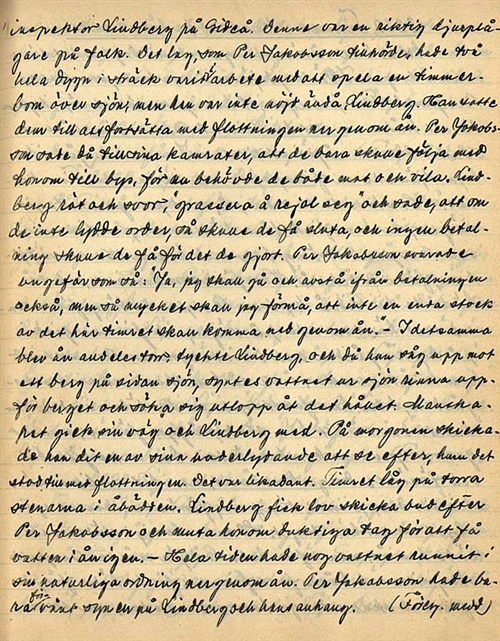 inspektor Lindberg på Gideå. Denne var en riktig djurplå-
gare på folk. Det lag, som Per Jakobsson tillhörde, hade två
hela dygn i sträck varit i arbete med att spela en timmer-
bom över sjön, men han var inte nöjd ändå, Lindberg. Han satte
dem till att fortsätta med flottningen ner genom ån. Per Jakobs-
son sade då till sina kamrater, att de bara skulle följa med
honom till bys, för nu behövde de både mat och vila. Lind-
berg röt och svor, "graesera å rejol seg" och sade, att om
de inte lydde order, så skulle de få sluta, och ingen betal-
ning skulle de få för det de gjort. Per Jakobsson svarade
ungefär som så: "Ja, jag skall gå och avstå ifrån betalningen
också, men så mycket skall jag förmå, att inte en enda stock
av det här timret skall komma ned genom ån." – I detsamma
blev ån alldeles torr, tyckte Lindberg, och då han såg upp mot
ett berg på sidan sjön, syntes vattnet ur sjön rinna upp-
för berget och söka sig utlopp åt det hållet. Manska-
pet gick sin väg och Lindberg med. På morgonen skicka-
de han dit en av sina underlydande att se efter, huru det
stod till med flottningen. Det var likadant. Timret låg på torra
stenarna i åbädden. Lindberg fick lov skicka bud efter
Per Jakobsson och muta honom duktiga tag för att få
vatten i ån igen. – Hela tiden hade nog vattnet runnit i
sin naturliga ordning ner genom ån. Per Jakobsson hade ba-
ra förvänt synen på Lindberg och hans anhang. (Fören. medd)